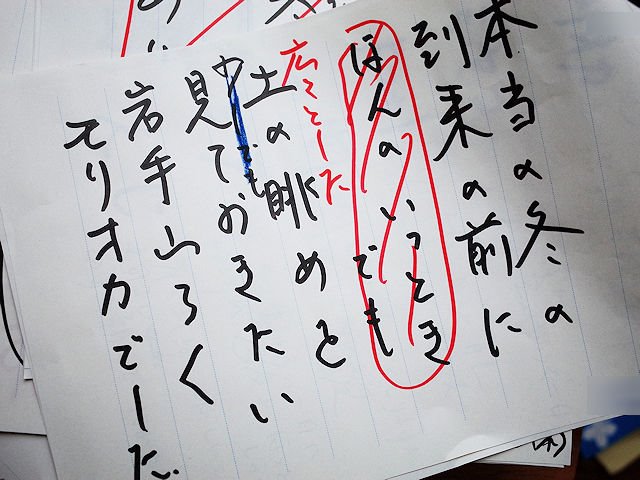 本当の冬の
到来の前に
ほんのいっとき
でも
広々とした
土の眺めと
見ておきたい
岩手山ろく
モリオカでした